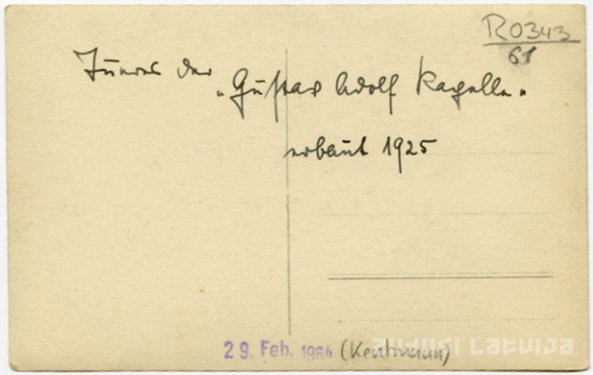 R0343
61
Inneres der
„Gustav Adolf Kapelle"
erbaut 1925
29. Feb. 1964 (Kentmann)
zudusi Latvija